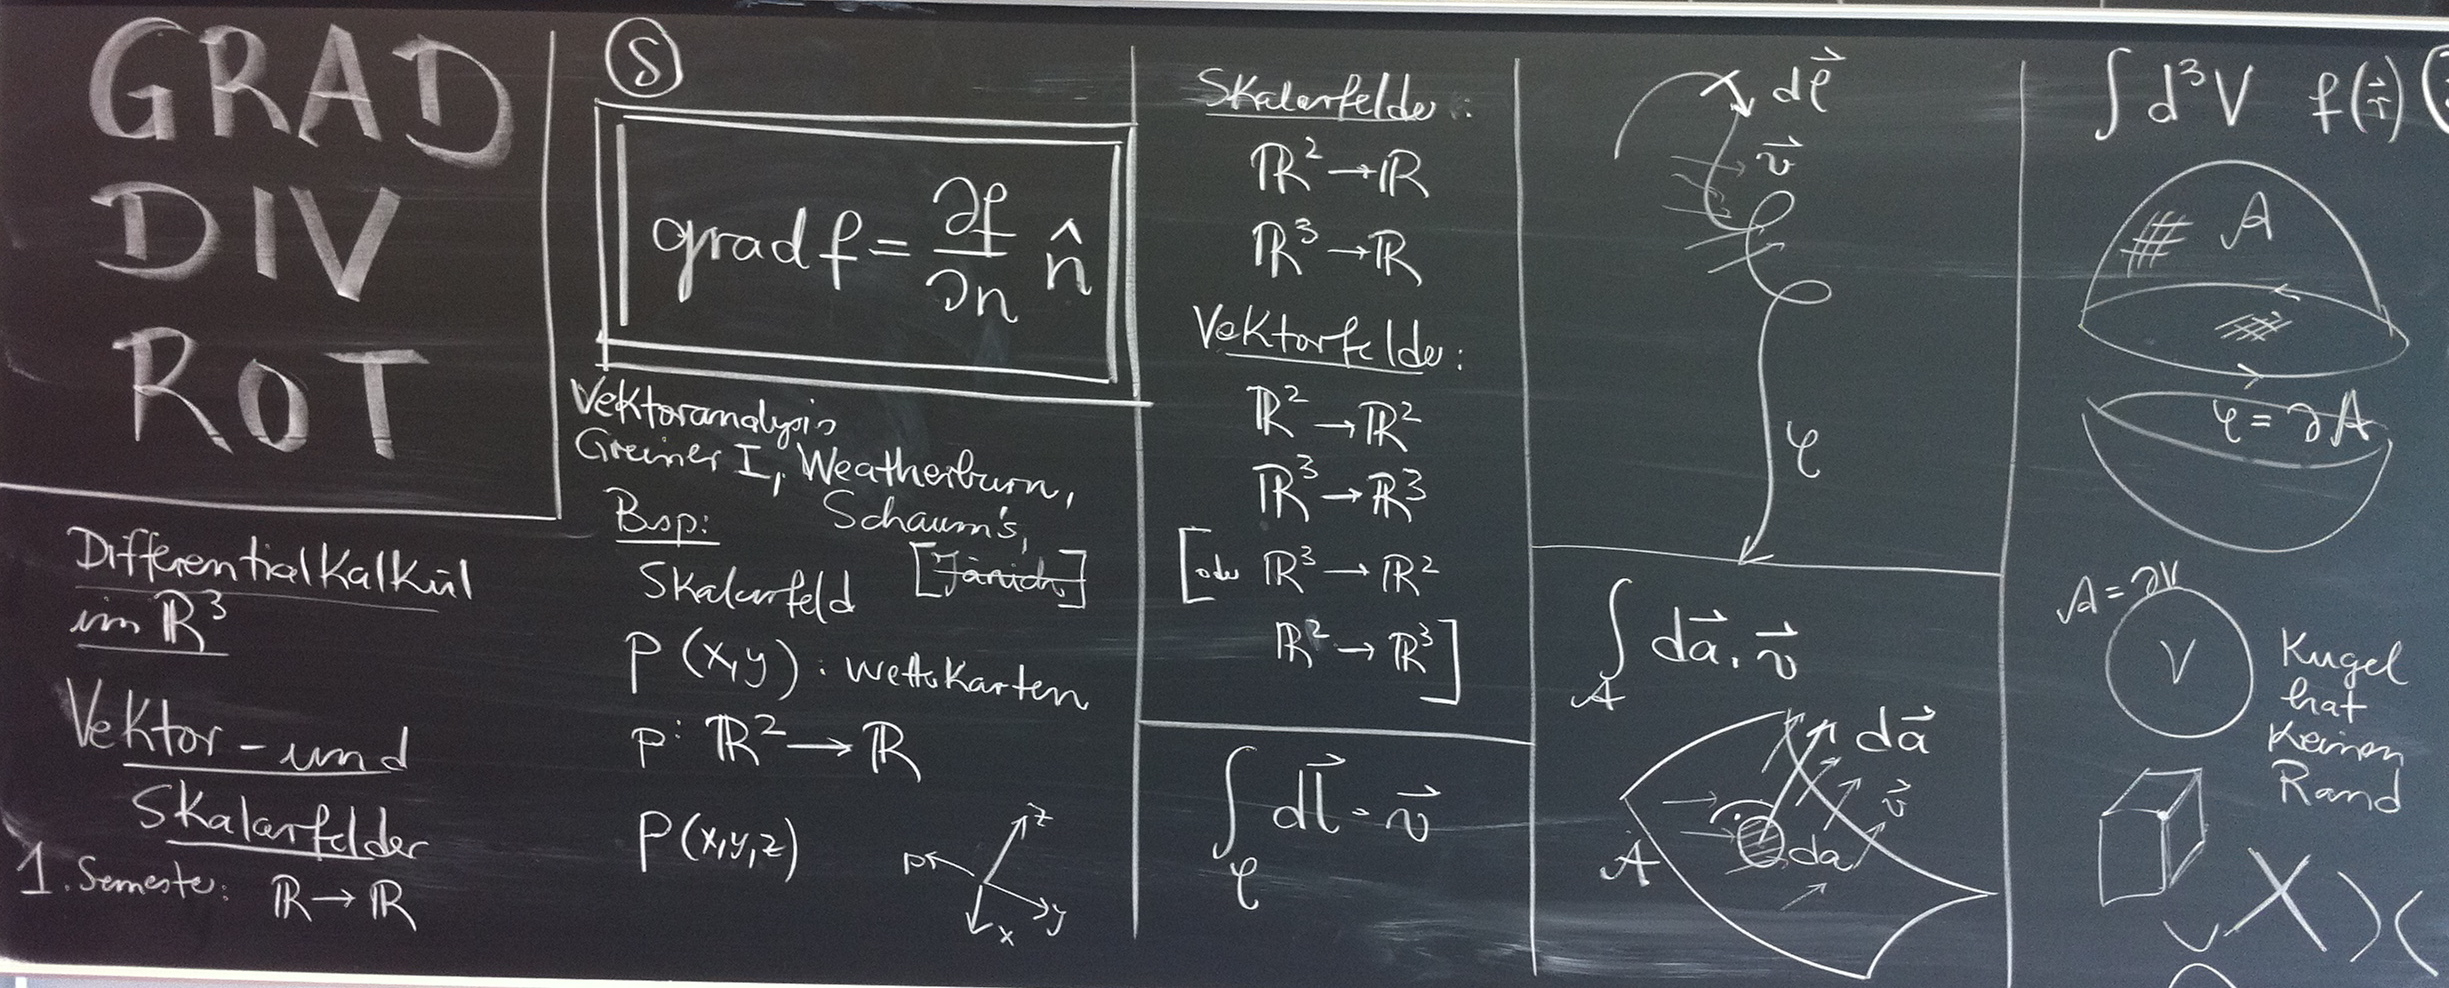 GRAD
DIV
ROT
Differentialkalkül
im ℝ³
Vektor- und
Skalarfelder
1. Semester: ℝ → ℝ
S
grad f = ∂f/∂n n̂
Vektoranalysis
Greiner I, Weatherburn,
Schaum's,
[Jänich]
Bsp:
Skalarfeld
p (x,y) : Wetterkarten
p: ℝ² → ℝ
p(x,y,z)
p
z
y
x
Skalarfelder:
ℝ² → ℝ
ℝ³ → ℝ
Vektorfelder:
ℝ² → ℝ²
ℝ³ → ℝ³
[oder ℝ³ → ℝ²
ℝ² → ℝ³]
∫ dl⃗ · v⃗
𝒞
dl⃗
v⃗
𝒞
∫ da⃗ · v⃗
A
da⃗
v⃗
A
da
∫ d³V f(r⃗)
A
𝒞 = ∂A
A = ∂V
V
Kugel
hat
keinen
Rand